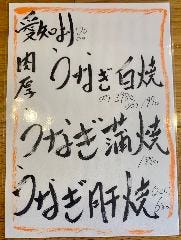 愛知より
肉厚
うなぎ白焼
うなぎ蒲焼
うなぎ肝焼